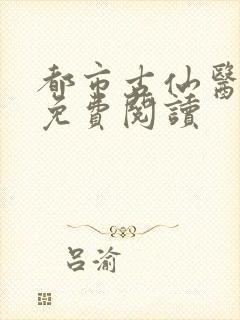 都市古仙醫
免費閱讀
吕渝